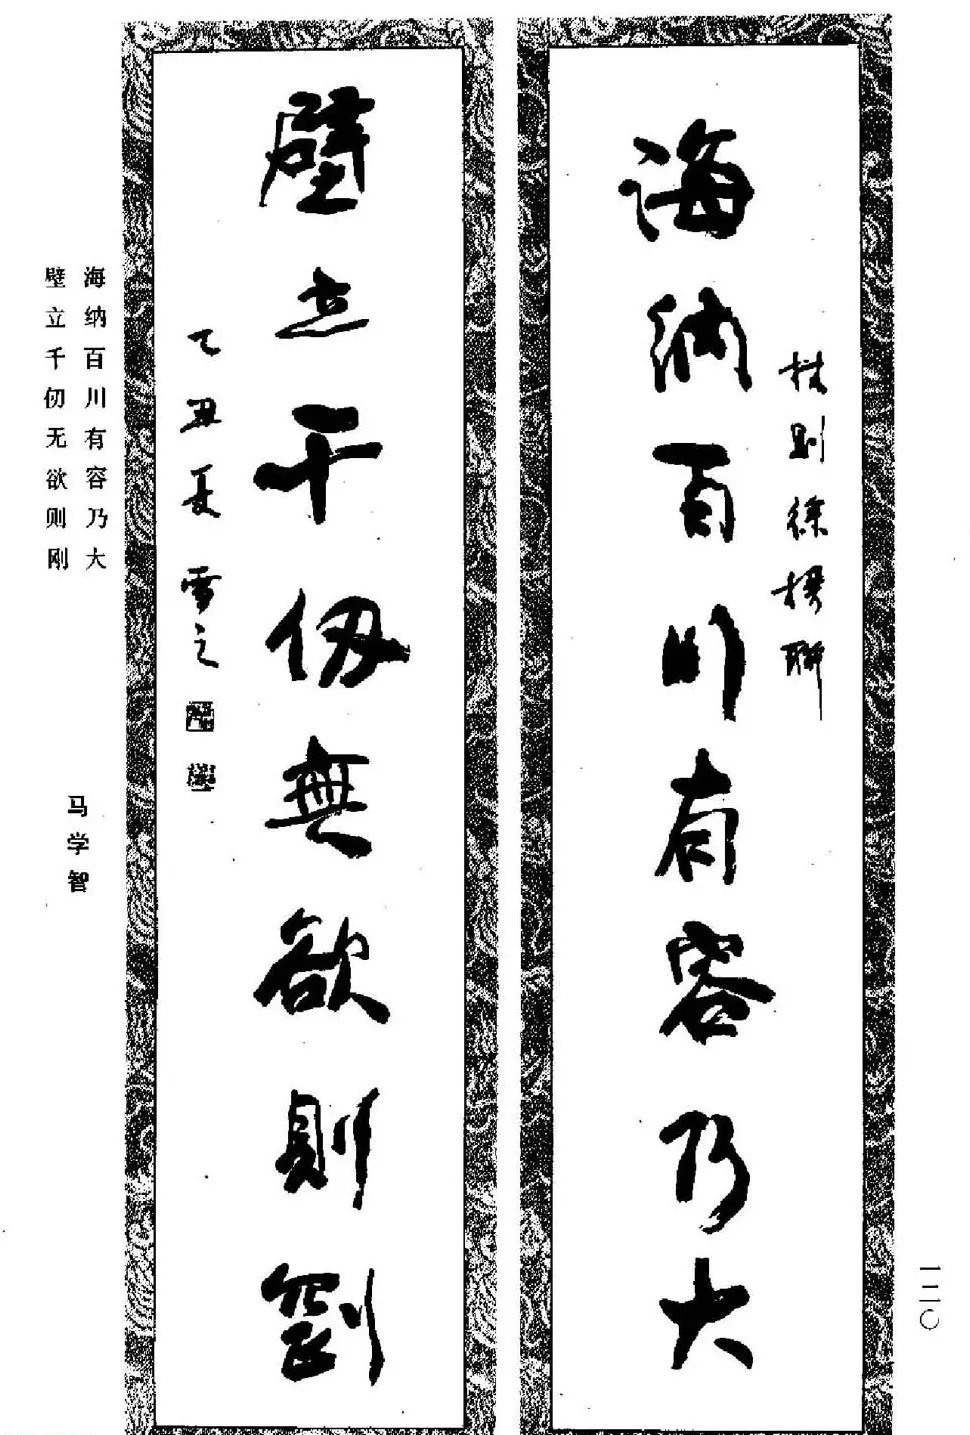 海納百川有容乃大
林則徐楹聯
壁立千仞無欲則剛
乙丑夏雪之
海纳百川有容乃大
壁立千仞无欲则刚
马学智
一二〇